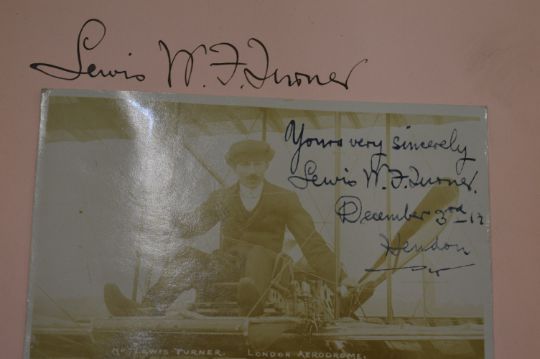 Lewis W. F. Turner
Yours very sincerely
Lewis W. F. Turner.
December 3rd 12
Hendon
Mr LEWIS TURNER. LONDON AERODROME.